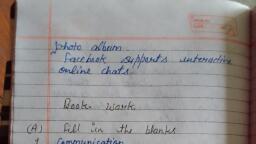 photo album.
Facebook supports interactive
online chats.
Book work
(A) Fill in the blanks
1 Communication